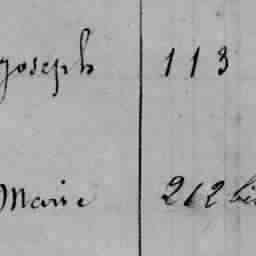 Joseph 113
Marie 212 bis